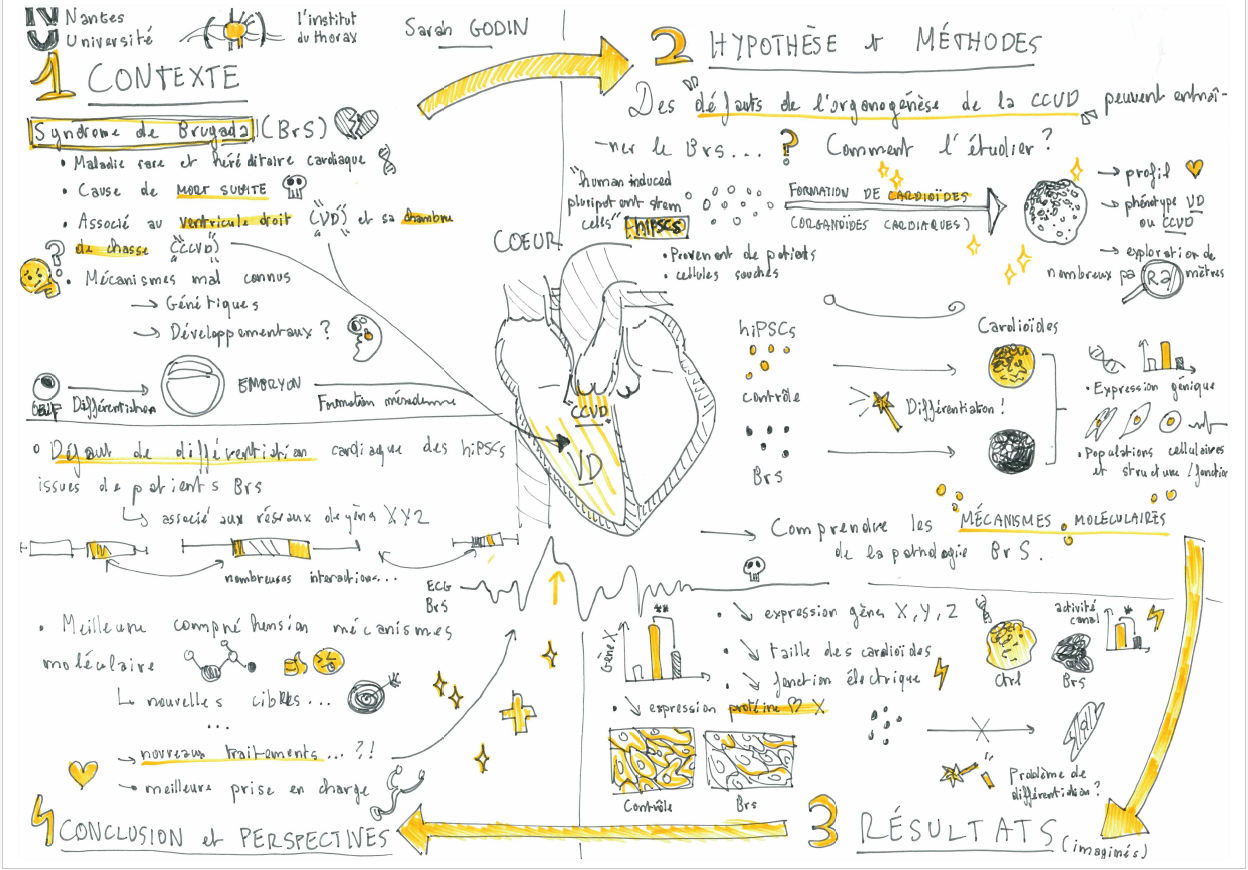 Nantes
Université
l'institut
du thorax
Sarah GODIN
1 CONTEXTE
Syndrome de Brugada (BrS)
• Maladie rare et héréditaire cardiaque
• Cause de MORT SUBITE
• Associé au ventricule droit (VD) et sa chambre
de chasse (CCVD)
?
• Mécanismes mal connus
→ Génétiques
→ Développementaux ?
OEUF
Différentiation
EMBRYON
Formation mésoderme
2 HYPOTHÈSE et MÉTHODES
Des "défauts de l'organogénèse de la CCVD" peuvent entraî-
-ner le BrS... ? Comment l'étudier ?
"human induced
pluripotent stem
cells" hiPSCs
• Provenant de patients
• cellules souches
FORMATION DE CARDIOÏDES
(ORGANOÏDES CARDIAQUES)
→ profil
→ phénotype VD
ou CCVD
→ exploration de
nombreux paRamètres
COEUR
CCVD
VD
hiPSCs
contrôle
BrS
Différentiation !
Cardioïdes
• Expression génique
• Populations cellulaires
et structure / fonction
→ Comprendre les MÉCANISMES MOLÉCULAIRES
de la pathologie BrS.
3 RÉSULTATS (imaginés)
Gène X
**
• ↘ expression gènes X, Y, Z
• ↘ taille des cardioïdes
• ↘ fonction électrique
• ↘ expression protéine X
Contrôle
BrS
Ctrl
BrS
activité
canal
**
Problème de
différentiation ?
4 CONCLUSION et PERSPECTIVES
• Défaut de différentiation cardiaque des hiPSCs
issues de patients BrS
↳ associé aux réseaux de gèns XYZ
nombreuses interactions...
ECG
BrS
• Meilleure compréhension mécanismes
moléculaire
↳ nouvelles cibles...
...
→ nouveaux traitements... ?!
→ meilleure prise en charge